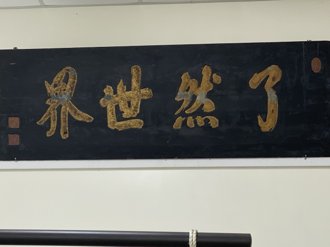 了然世界